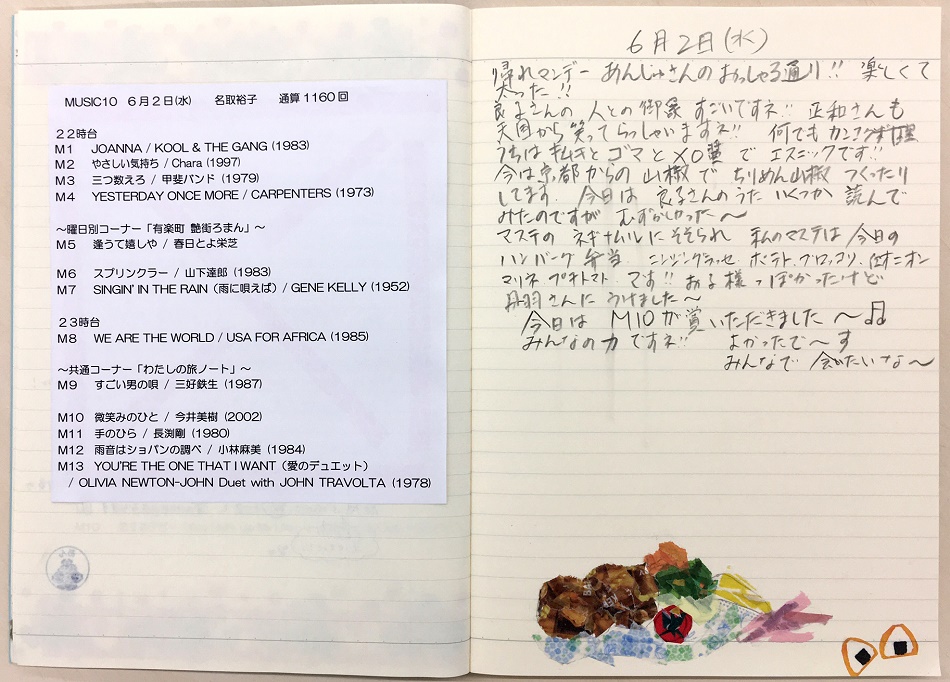 MUSIC10 6月2日(水) 名取裕子 通算1160回
22時台
M1 JOANNA / KOOL & THE GANG (1983)
M2 やさしい気持ち / Chara (1997)
M3 三つ数えろ / 甲斐バンド (1979)
M4 YESTERDAY ONCE MORE / CARPENTERS (1973)
～曜日別コーナー「有楽町 艶街ろまん」～
M5 逢うて嬉しや / 春日とよ栄芝
M6 スプリンクラー / 山下達郎 (1983)
M7 SINGIN' IN THE RAIN (雨に唄えば) / GENE KELLY (1952)
23時台
M8 WE ARE THE WORLD / USA FOR AFRICA (1985)
～共通コーナー「わたしの旅ノート」～
M9 すごい男の唄 / 三好鉄生 (1987)
M10 微笑みのひと / 今井美樹 (2002)
M11 手のひら / 長渕剛 (1980)
M12 雨音はショパンの調べ / 小林麻美 (1984)
M13 YOU'RE THE ONE THAT I WANT (愛のデュエット)
/ OLIVIA NEWTON-JOHN Duet with JOHN TRAVOLTA (1978)
6月2日(水)
帰れマンデー あんじゅさんのおっしゃる通り!! 楽しくて
笑った!!
良子さんの 人との御縁 すごいですネ!! 正和さんも
天国から笑ってらっしゃいますネ!! 何でも
うちは キムチと ゴマと XO醤 で エスニックです!!
今は京都からの 山椒で ちりめん山椒 つくったり
してます. 今日は 良子さんのうた いくつか 読んで
みたのですが むずかしかった～
マステの ネギナムルにそそられ 私のマステは 今日の
ハンバーグ弁当 ニンジングラッセ ポテト. ブロッコリ. オニオン
マリネ プチトマト です!! お子様っぽかったけど
丹羽さんに うけました～
今日は M10が賞いただきました～♫
みんなの力ですネ!! よかったで～す
みんなで 会いたいな～